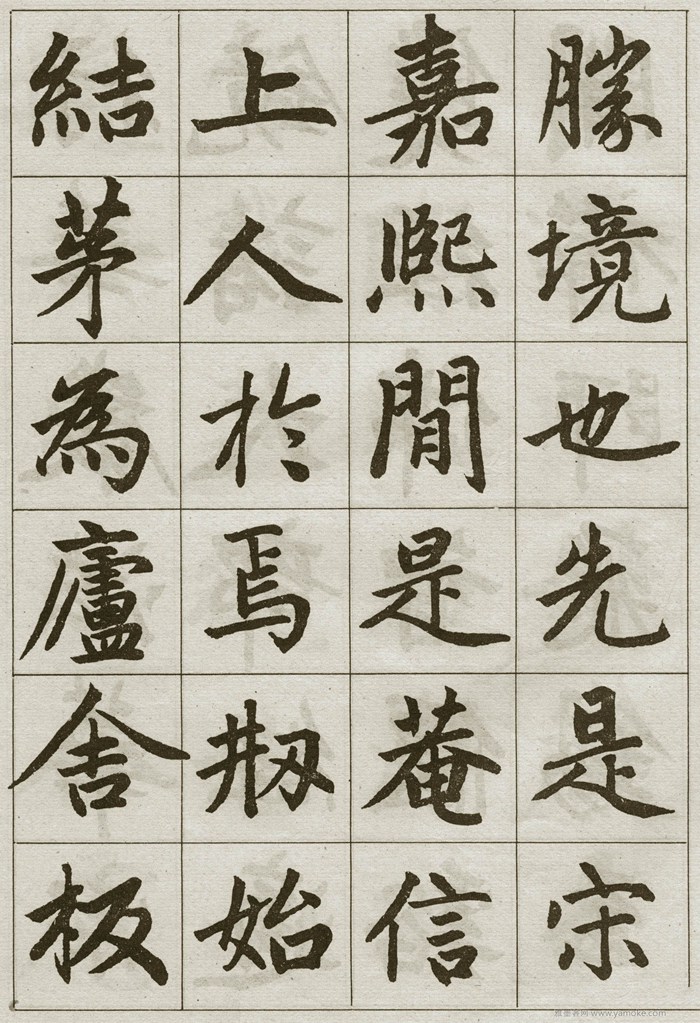 勝境也先是宋
嘉熙間是菴信
上人於焉刱始
結茅為廬舍板
www.yamoke.com